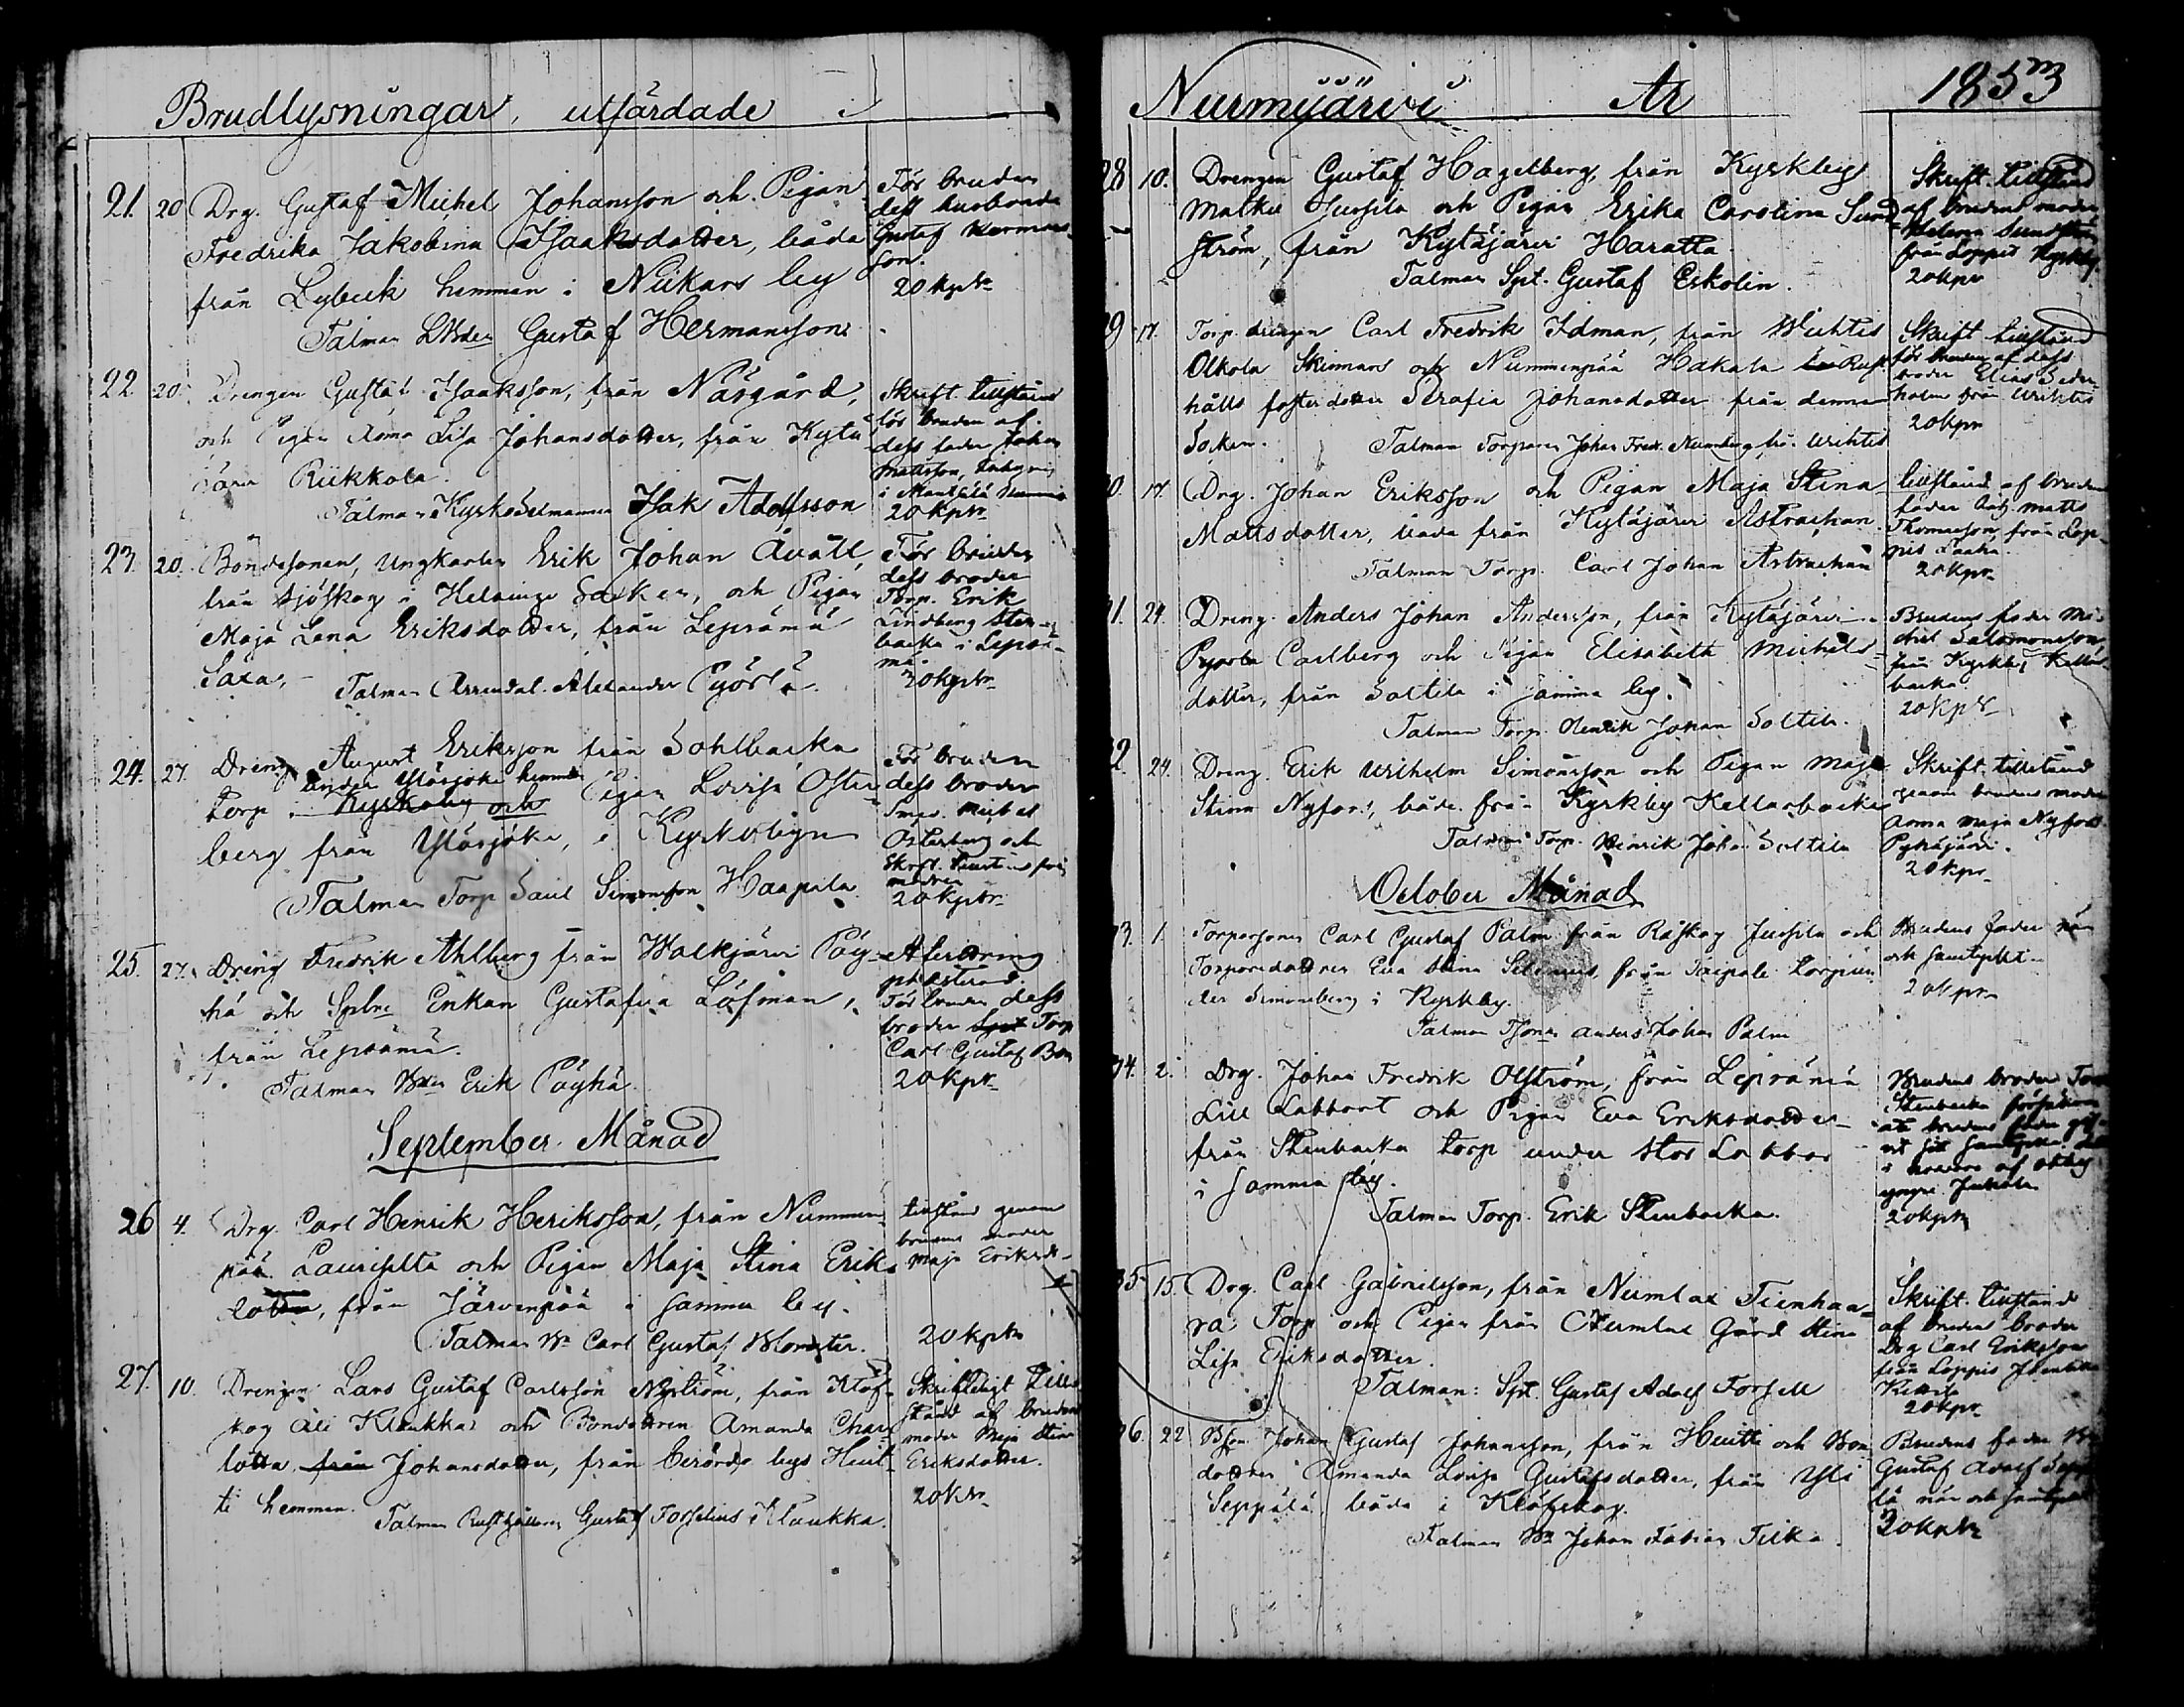 Brudlysningar, utfärdade i
21. 20 Drg. Gustaf Michel Johansson och Pigan
Fredrika Jakobina Isaaksdotter, båda
från Lybeck hemman i Nukars by
Talman Gustaf Hermansson
För bruden
dess husbonde
Gustaf Hermans-
son.
20 kpr
22. 20. Drengen Gustaf Isaaksson, från Näsgård,
och Pigan Anna Lisa Johansdotter, från Kytä-
järvi Riikkola.
Talman Kyrko Isak Adolfsson
Skrift. tillstånd
för bruden af
dess fader Johan
Mattsson,
i Mäntsälä
20 kpr
23. 20. Bondesonen, Ungkarlen Erik Johan
från Sjöskog i Helsinge Socken, och Pigan
Maja Lena Eriksdotter, från Lepsämä
Saxa,
Talman Arrendat. Alexander
För bruden
dess broder
Torp. Erik
Lindberg Sten-
backa i Lepsä-
mä.
20 kpr
24. 27. Dreng August Eriksson från Sohlbacka
under Ylösjoki hemman
torp i Kyrkoby och Pigan Lovisa Öster-
berg från Ylösjoki, i Kyrkobyn
Talman Torp Saul Simonsson Haapala
För bruden
dess broder
Michel
Österberg och
Skrift. från
modren
20 kpr
25. 27. Dreng Fredrik Ahlberg från Walkjärvi Pöy-
hä och Enkan Gustafva Löfman,
från Lepsämä.
Talman Erik Pöyhä
Afvittring
presterad.
För bruden dess
broder Torp
Carl Gustaf
20 kpr
September Månad
26 4. Drg. Carl Henrik Heriksson, från Nummen-
pää Laurisilta och Pigan Maja Stina Eriks-
dotter, från Järvenpää i samma by.
Talman Carl Gustaf
tillstånd genom
brudens moder
Maja Eriksd.
20 kpr
27. 10. Drengen Lars Gustaf Carlsson Nyström, från Klöf-
skog Ali Klaukka och Bondottren Amanda Char-
lotta från Johansdotter, från berörde bys Huit-
ti hemman.
Talman Rusthållaren Gustaf Forselius Klaukka.
Skriftligt till-
stånd af brudens
moder Maja Stina
Eriksdotter.
20 kpr
Nurmijärvi År 1853
28 10. Drengen Gustaf Hagelberg, från Kyrkby
Jussila och Pigan Erika Carolina Sund-
ström, från Kytäjärvi Haratta.
Talman Spt. Gustaf Eskolin.
Skrift. tillstånd
af brudens moder
Helena Sundström
från Loppis Kyrkby.
20 kpr
29 17. Torp. drengen Carl Fredrik Idman, från Wichtis
Olkola Skinnars och Nummenpää Hakala Rust-
hålls fosterdotter Serafia Johansdotter från denna
Socken.
Talman Torparen Johan Fredr. från Wichtis
Skrift tillstånd
för bruden af dess
broder Elias Seder-
holm från Wichtis
20 kpr
30. 17. Drg. Johan Eriksson och Pigan Maja Stina
Mattsdotter, båda från Kytäjärvi Astrachan.
Talman Torp. Carl Johan Astrachan
tillstånd af brudens
fader Matts
Thomasson, från Lop-
pis Laaka.
20 kpr
31. 24. Dreng. Anders Johan Andersson, från Kytäjärvi
Carlberg och Pigan Elisabeth Michels-
dotter, från Soltila i samma by.
Talman Torp. Henrik Johan Soltila.
Brudens fader Mi-
chel Salomonsson
från Kyrkby Kellar-
backa.
20 kpr
32. 24. Dreng. Erik Wilhelm Simonsson och Pigan Maja
Stina Nyfors, båda från Kyrkby Kellarbacka
Talman Torp. Henrik Joha. Soltila
Skrift. tillstånd
genom brudens moder
Anna Maja Nyfors
20 kpr
October Månad
33. 1. Torparsonen Carl Gustaf Palm från Röskog Jussila och
Torparedottren Eva Stina från Taipale torp un-
der Simonsberg i Kyrkby.
Talman Anders Johan Palm
Brudens fader när
och samtyckt
20 kpr
34. 2. Drg. Johan Fredrik Olström, från Lepsämä
Lill Labbart och Pigan Eva Eriksdotter
från Stenbacka torp under Stor Labbar
i samma by.
Talman Torp. Erik Stenbacka.
Brudens broder Torp
Stenbacka försäkrar
att brudens fader gif-
vit sitt samtycke
20 kpr
35 15. Drg. Carl Gabrielsson, från Numlax Tienhaa-
ra Torp och Pigan från Numlax Gård Stina
Lisa Eriksdotter.
Talman: Spt. Gustaf Adolf Forsell
Skrift. tillstånd
af brudens broder
Drg Carl Eriksson
från Loppis
20 kpr
36. 22 Johan Gustaf Johansson, från Huitti och Bon-
dotter Amanda Lovisa Gustafsdotter, från Yli
Seppälä, båda i Klöfskog.
Talman Johan Fabian Tilka.
Brudens fader
Gustaf Adolf Seppä-
lä när och samtyckt
20 kpr